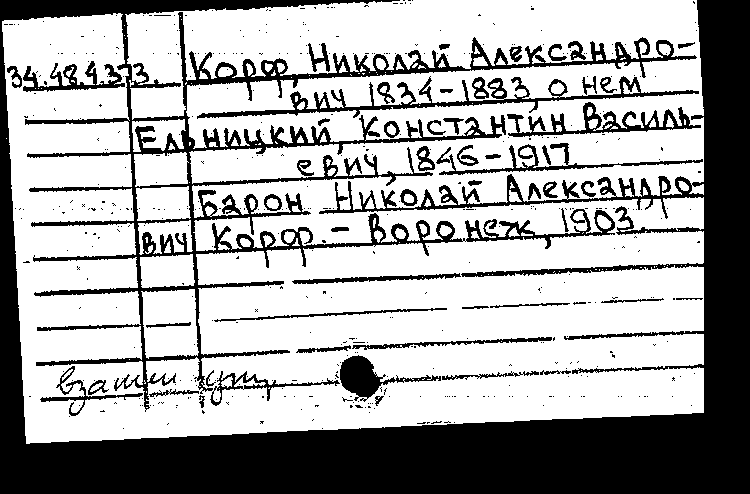 34.48.4.373. Корф, Николай Александро-
вич, 1834-1883, о нем
Ельницкий, Константин Василь-
евич, 1846-1917
Барон Николай Александро-
вич Корф. - Воронеж, 1903.
взамен